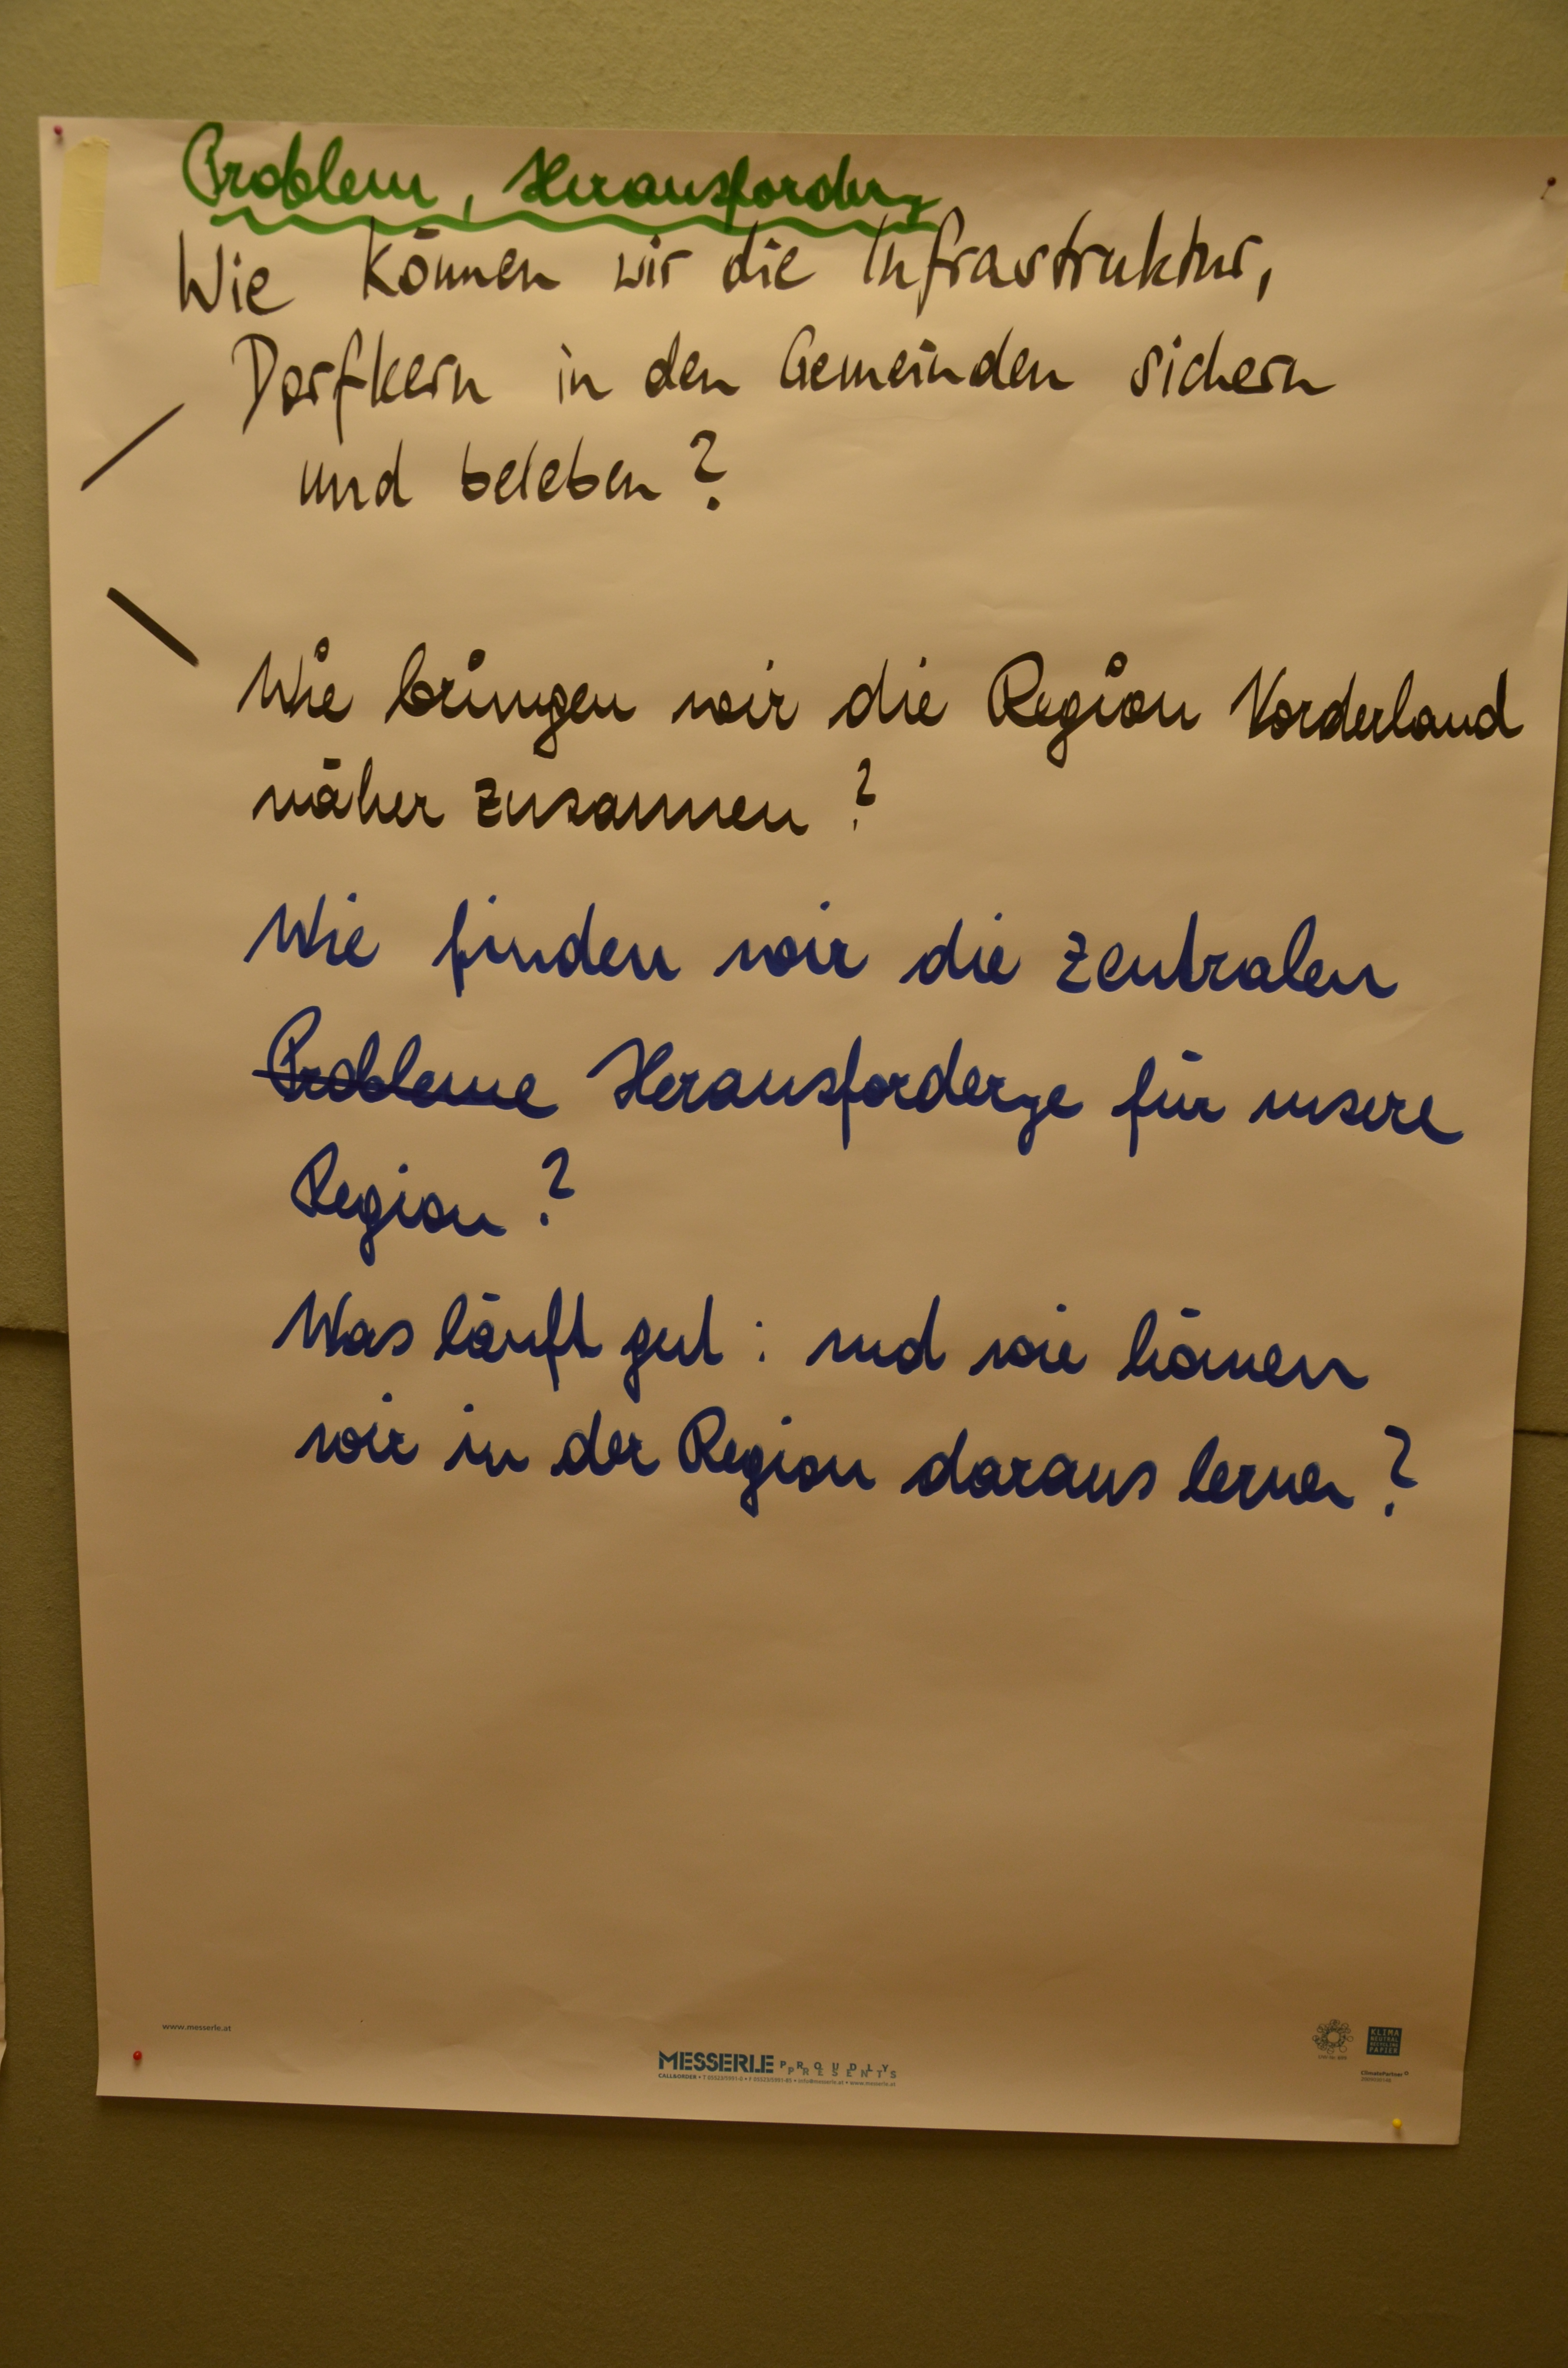 Problem, Herausforderg
Wie können wir die Infrastruktur,
Dorfkern in den Gemeinden sichern
und beleben?
Wie bringen wir die Region Vorderland
näher zusammen?
Wie finden wir die zentralen
Probleme Herausforderge für unsere
Region?
Was läuft gut: und wie können
wir in der Region daraus lernen?
www.messerle.at
MESSERLE PROUDLY PRESENTS
CALL&ORDER • T 05523/5991-0 • F 05523/5991-85 • info@messerle.at • www.messerle.at
KLIMA
NEUTRAL
RECYCLING
PAPIER
ClimatePartner